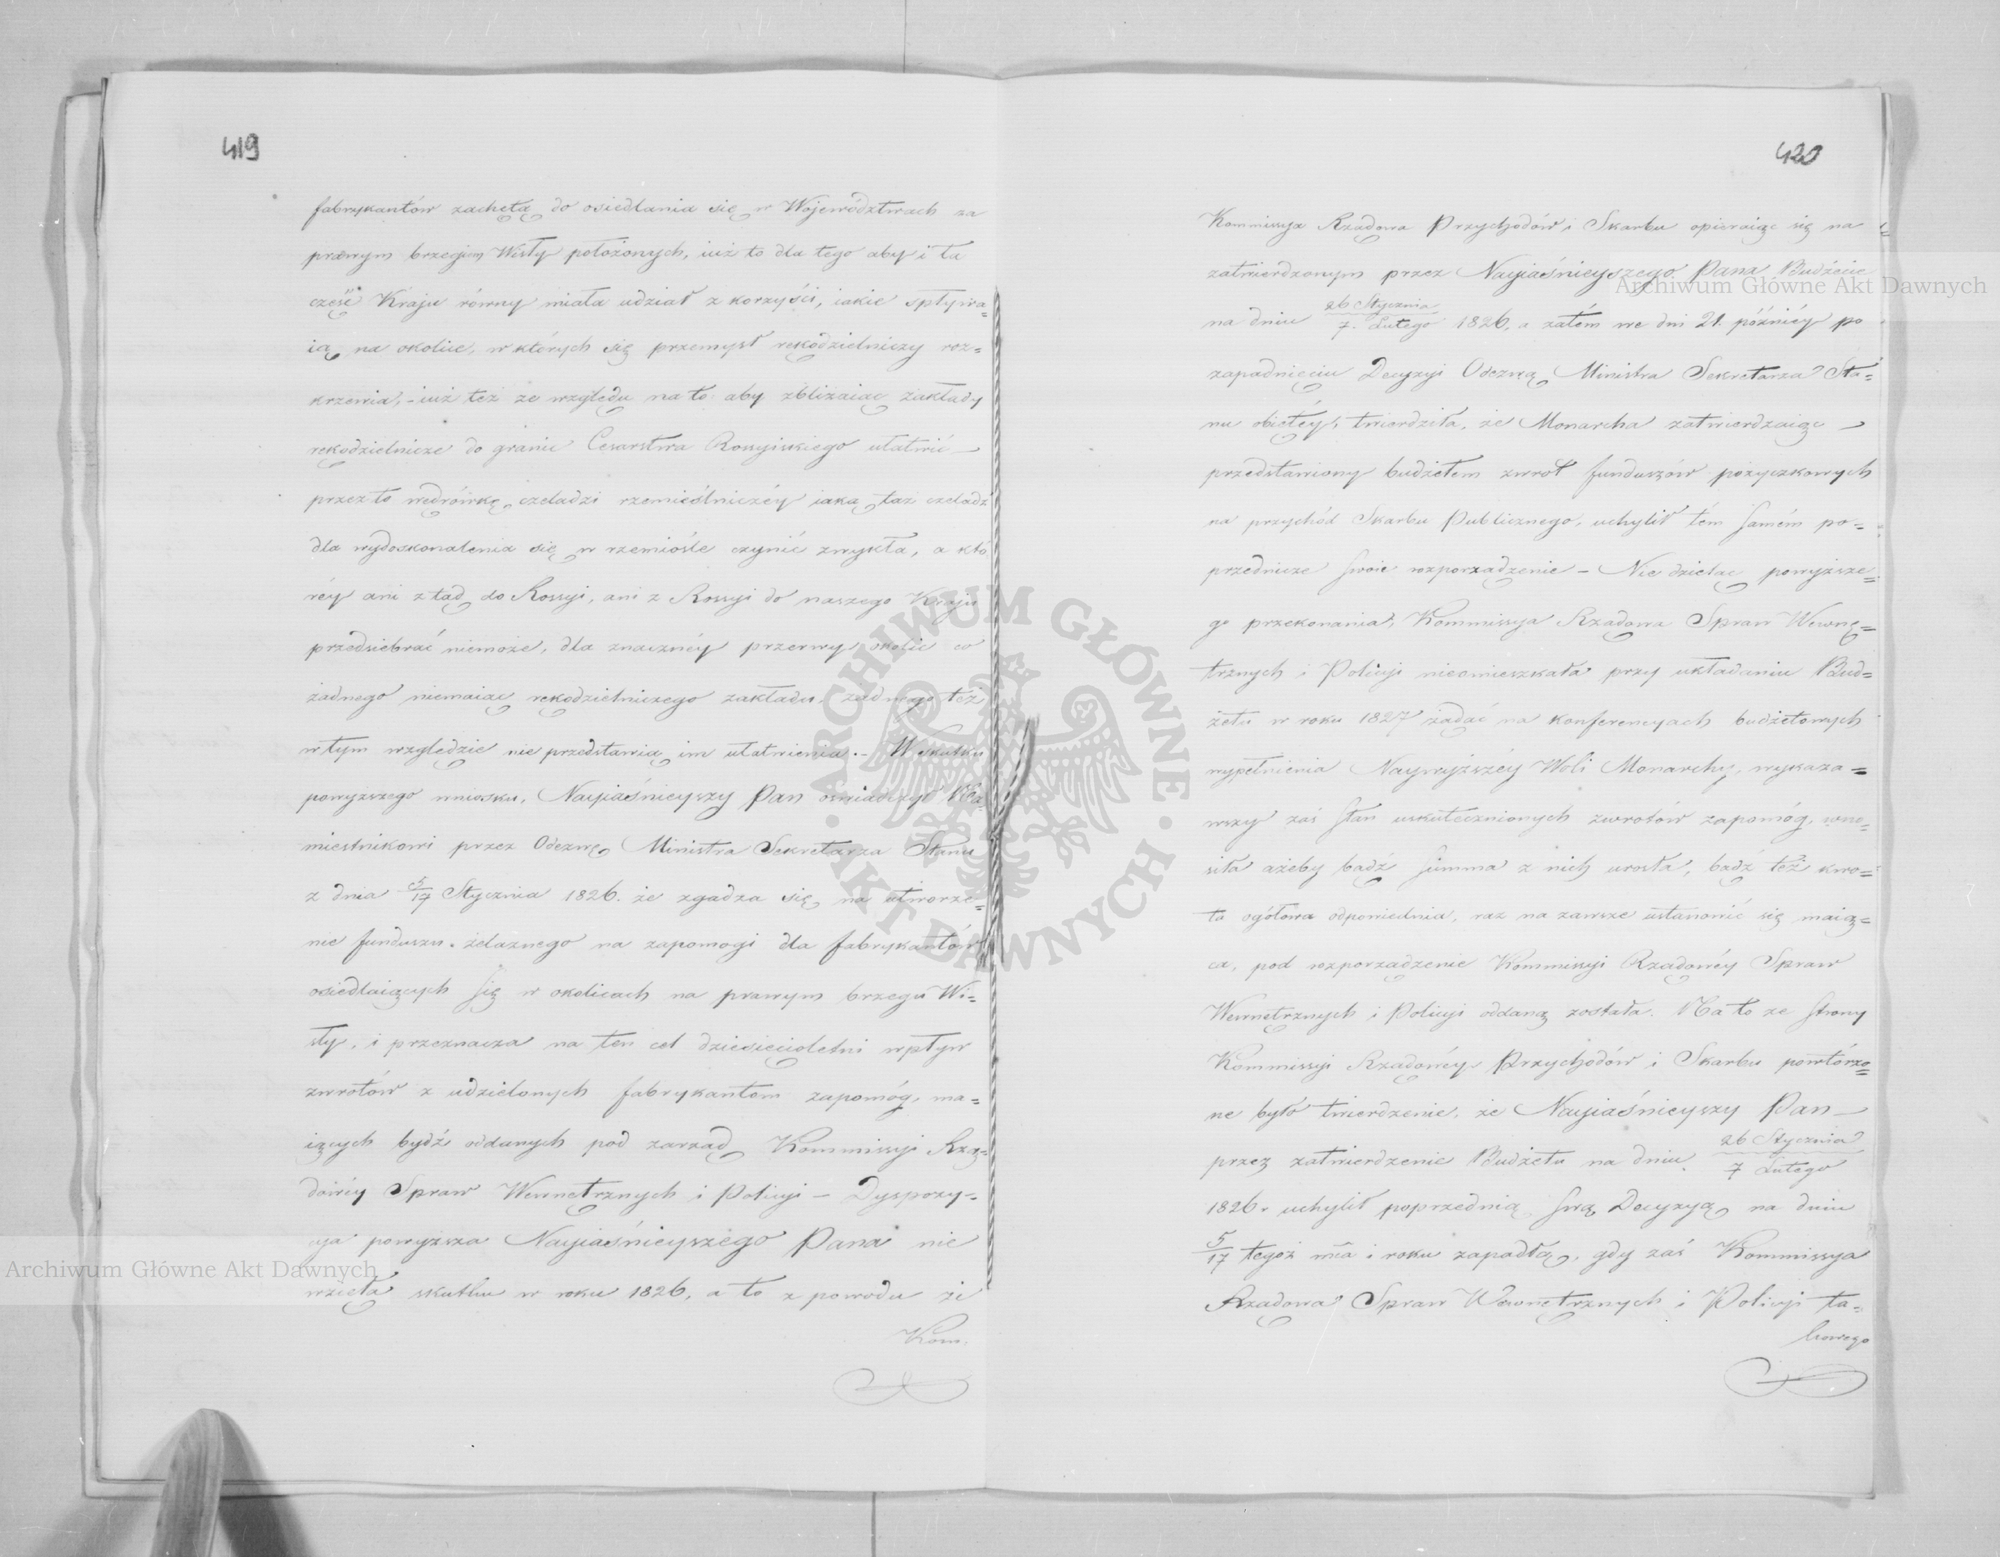 419
fabrykantów zachętą do osiedlania się w Województwach za
prawym brzegiem Wisły położonych, iuż to dla tego aby i ta
część Kraju równy miała udział z korzyści, iakie spływa=
ią na okolice, w których się przemysł rękodzielniczy roz=
krzewia, - iuż też ze względu na to aby zbliżaiąc zakłady
rękodzielnicze do granic Cesarstwa Rossyiskiego ułatwić
przez to wędrówkę czeladzi rzemieślniczéy iaką taż czeladź
dla wydoskonalenia się w rzemiośle czynić zwykła, a któ
réy ani ztąd do Rossyi, ani z Rossyi do naszego Kraju
przedsiebrać niemoże, dla znacznéy przerwy okolic co
żadnego niemaiąc rękodzielniczego zakładu, żadnego też
w tym względzie nie przedstawią im ułatwienia. - W skutku
powyższego wniosku, Nayiaśnieyszy Pan oświadczył Na
miestnikowi przez Odezwę Ministra Sekretarza Stanu
z dnia 5/17 Stycznia 1826. że zgadza się na utworze=
nie funduszu żelaznego na zapomogi dla fabrykantów
osiedlaiących się w okolicach na prawym brzegu Wi=
sły, i przeznacza na ten cel dziesięcioletni wpływ
zwrotów z udzielonych fabrykantom zapomóg, ma=
iących bydź oddanych pod zarząd Kommissyi Rzą=
dowéy Spraw Wewnętrznych i Policyi - Dyspozy=
cya powyższa Nayiaśnieyszego Pana nie
wzięła skutku w roku 1826, a to z powodu że
Kom.
420
Kommissya Rządowa Przychodów i Skarbu opieraiąc się na
zatwierdzonym przez Nayiaśnieyszego Pana Budżecie
na dniu 26 Stycznia/7. Lutego 1826, a zatém we dni 21. późniéy po
zapadnięciu Decyzyi Odezwą Ministra Sekretarza Sta=
nu obiętéy, twierdziła, że Monarcha zatwierdzaiąc
przedstawiony budżetem zwrot funduszów pożyczkowych
na przychód Skarbu Publicznego, uchylił tém samém po=
przednicze swoie rozporządzenie - Nie dzieląc powyższe=
go przekonania, Kommissya Rządowa Spraw Wewnę=
trznych i Policyi nieomieszkała przy układaniu Bud=
żetu w roku 1827 żądać na konferencyach budżetowych
wypełnienia Naywyższéy Woli Monarchy, wykaza=
wszy zaś stan uskutecznionych zwrotów zapomóg, wno=
siła ażeby bądź summa z nich urosła, bądź też kwo=
ta ogółowa odpowiednia, raz na zawsze ustanowić się maią=
ca, pod rozporządzenie Kommissyi Rządowéy Spraw
Wewnętrznych i Policyi oddaną została. Na to ze strony
Kommissyi Rządowéy Przychodów i Skarbu powtórzo=
ne było twierdzenie, że Nayiaśnieyszy Pan
przez zatwierdzenie Budżetu na dniu 26 Stycznia/7 Lutego
1826. uchylił poprzednią swą Decyzyą na dniu
5/17 tegoż mca i roku zapadłą, gdy zaś Kommissya
Rządowa Spraw Wewnętrznych i Policyi ta=
kowego
Archiwum Główne Akt Dawnych
ARCHIWUM GŁÓWNE AKT DAWNYCH
Archiwum Główne Akt Dawnych